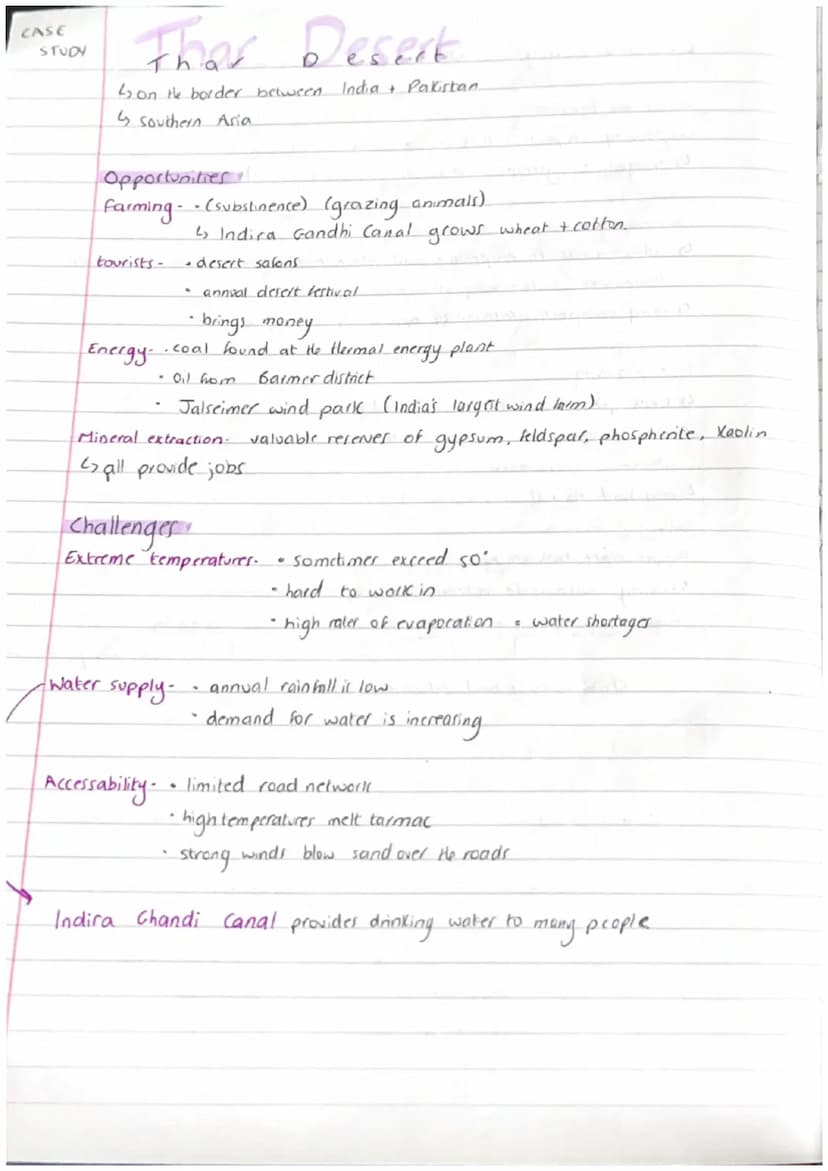 CASE
STUDY
Thar Desert
Thar Desert
↳ on the border between India + Pakistan
↳ Southern Asia
Opportunities
Farming- • (substinence) (grazing animals)
↳ Indira Gandhi Canal grows wheat + cotton.
tourists- • desert safaris
• annual desert festival
• brings money
Energy- • coal found at the thermal energy plant
• Oil from Barmer district
• Jalseimer wind park (India's largest wind farm)
Mineral extraction- valuable reserves of gypsum, feldspar, phospherite, Kaolin
↳ all provide jobs
Challenges
Extreme temperatures- • sometimes exceed 50°
• hard to work in
• high rates of evaporation = water shortages
Water supply- • annual rainfall is low
• demand for water is increasing
Accessability- • limited road network
• high temperatures melt tarmac
• strong winds blow sand over the roads
Indira Ghandi Canal provides drinking water to many people